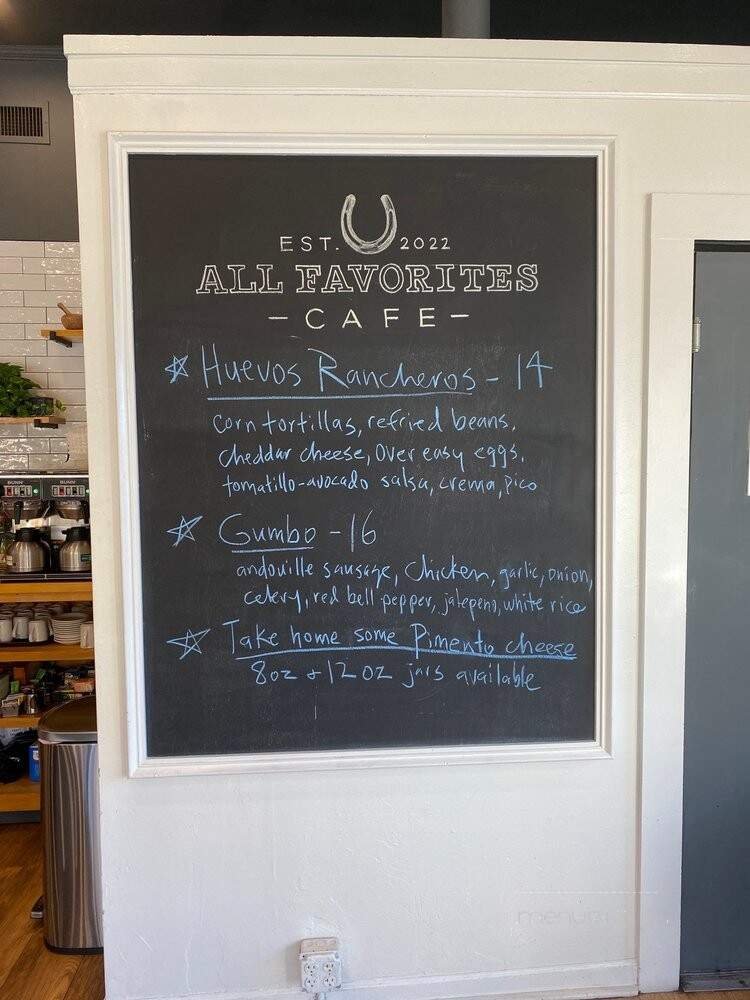 EST. 2022
ALL FAVORITES
- CAFE -
☆ Huevos Rancheros - 14
corn tortillas, refried beans,
cheddar cheese, over easy eggs,
tomatillo-avocado salsa, crema, pico
☆ Gumbo - 16
andouille sausage, chicken, garlic, onion,
celery, red bell pepper, jalepeno, white rice
☆ Take home some Pimento cheese
8oz + 12oz jars available
BUNN
BUNN
menupix